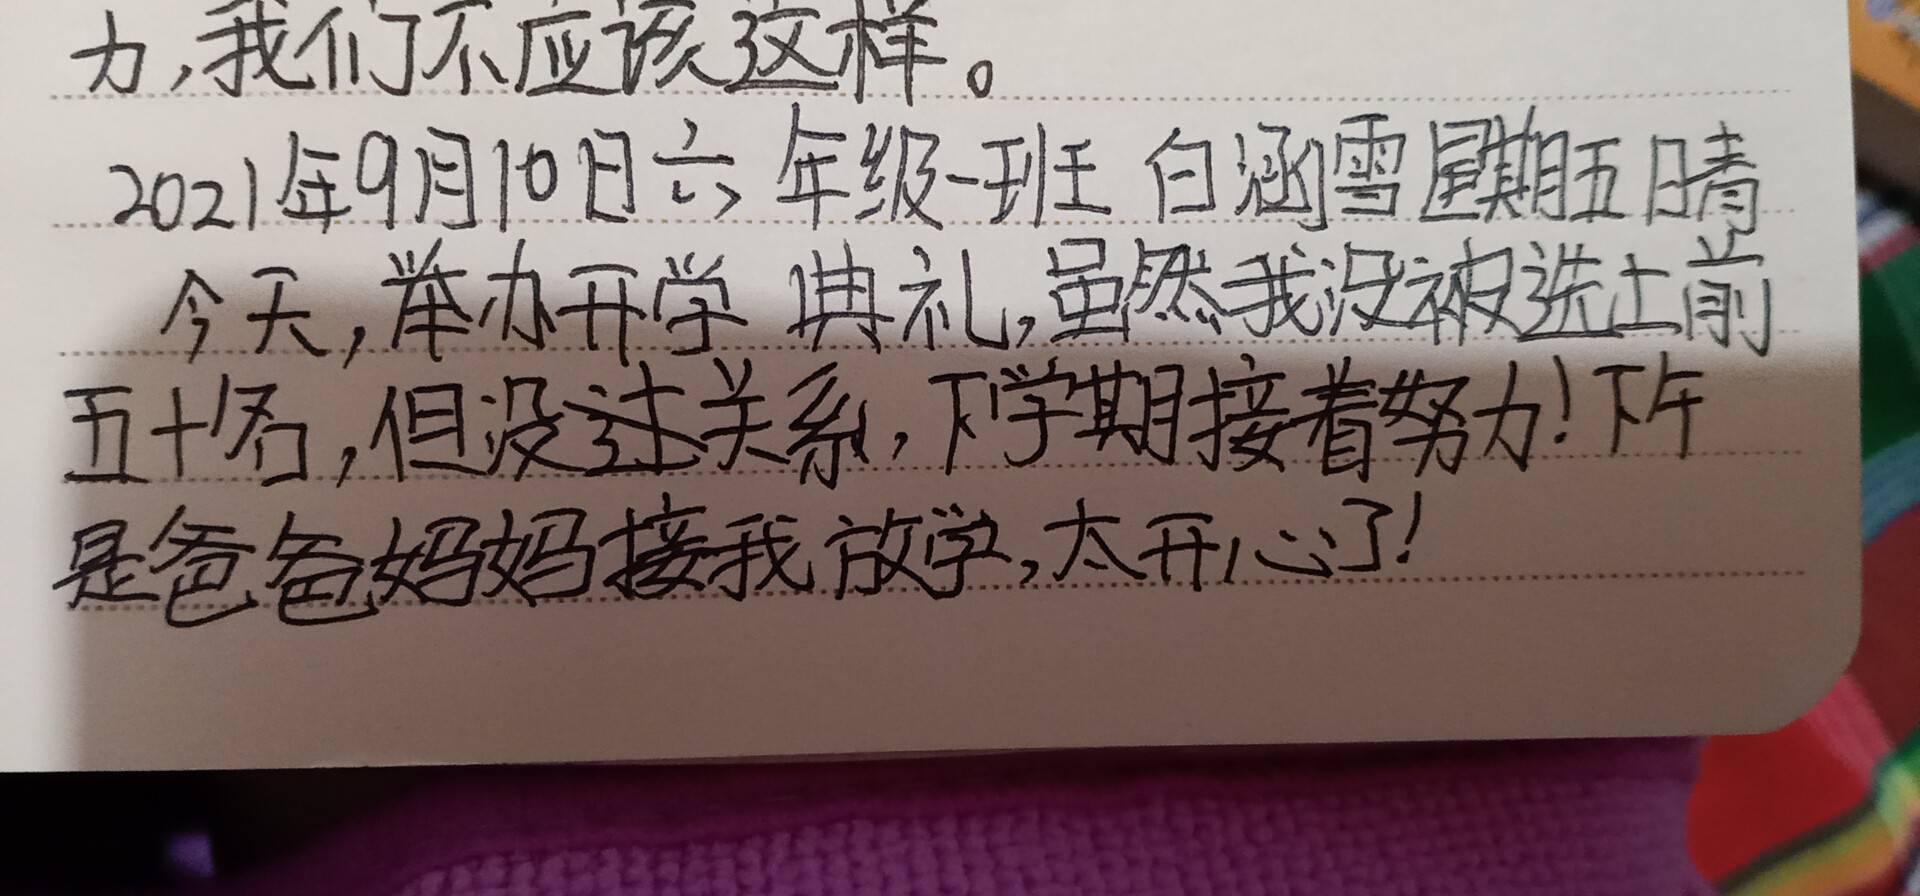 力,我们不应该这样。
2021年9月10日六年级一班 白涵雪星期五日晴
今天,举办开学典礼,虽然我没被选上前
五十名,但没过关系,下学期接着努力!下午
是爸爸妈妈接我放学,太开心了!